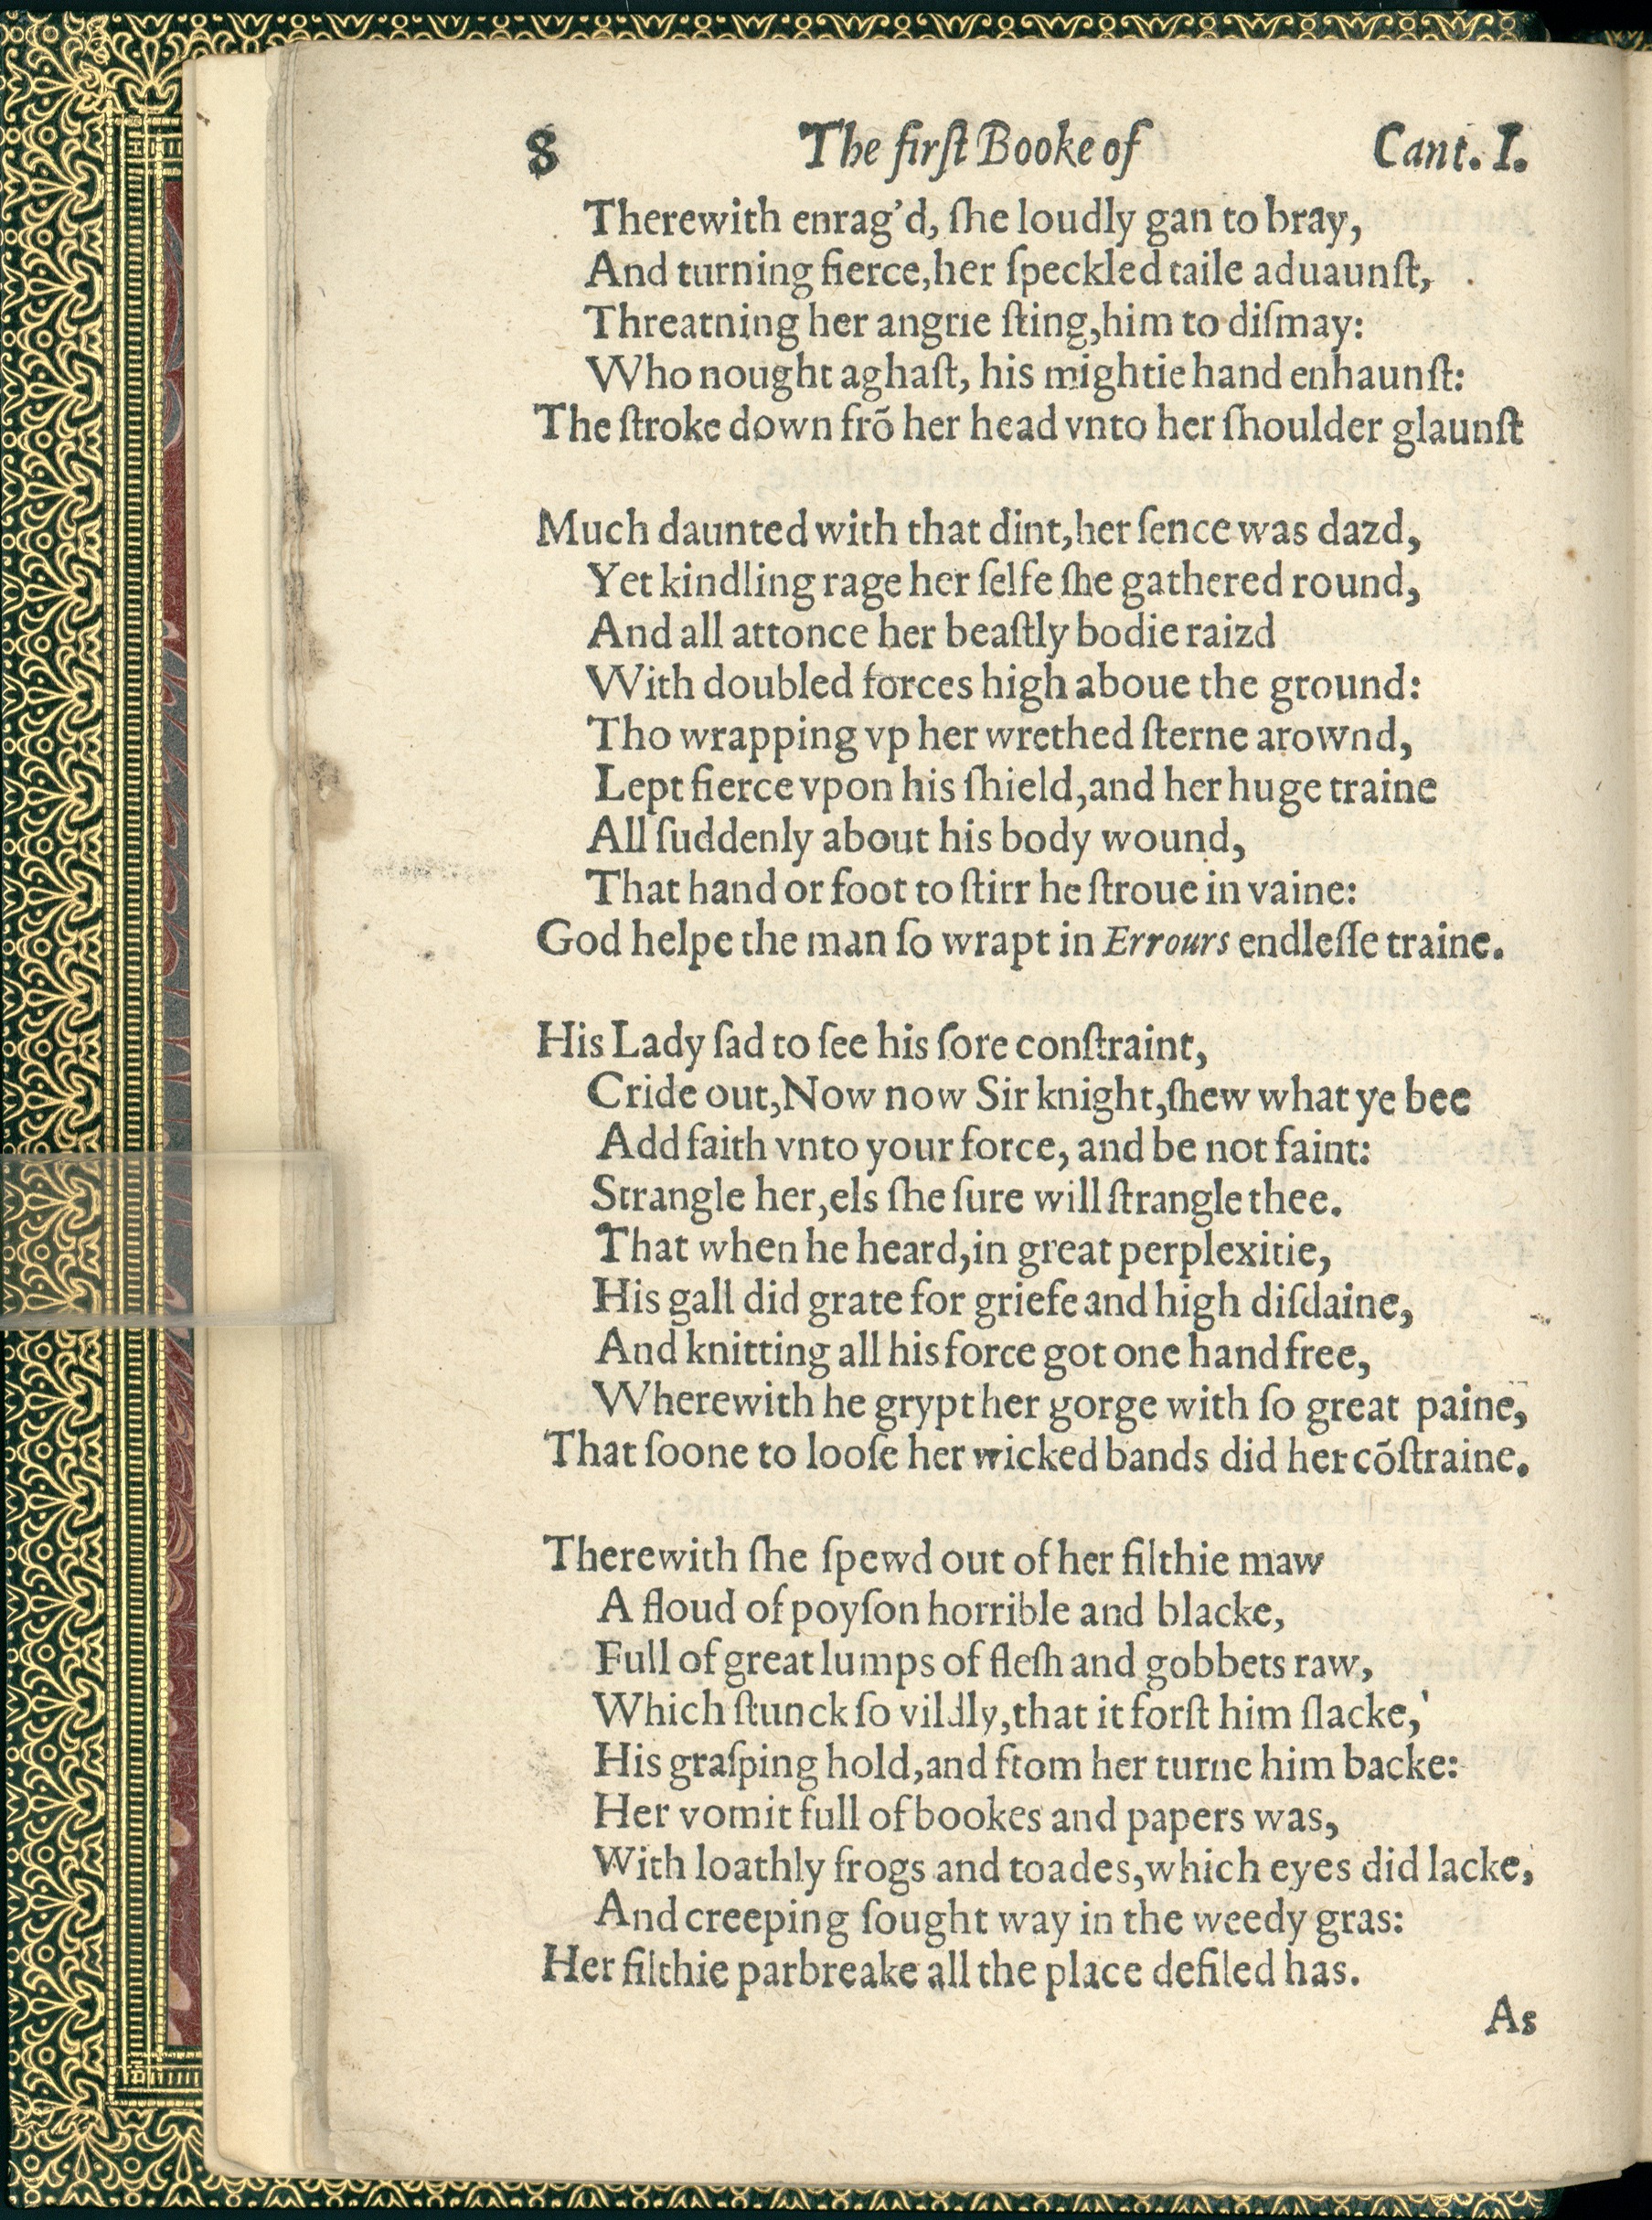 8 The firſt Booke of Cant. I.
Therewith enrag'd, ſhe loudly gan to bray,
And turning fierce,her ſpeckled taile aduaunſt,
Threatning her angrie ſting,him to diſmay:
Who nought aghaſt, his mightie hand enhaunſt:
The ſtroke down frō her head vnto her ſhoulder glaunſt
Much daunted with that dint,her ſence was dazd,
Yet kindling rage her ſelfe ſhe gathered round,
And all attonce her beaſtly bodie raizd
With doubled forces high aboue the ground:
Tho wrapping vp her wrethed ſterne arownd,
Lept fierce vpon his ſhield,and her huge traine
All ſuddenly about his body wound,
That hand or foot to ſtirr he ſtroue in vaine:
God helpe the man ſo wrapt in Errours endleſſe traine.
His Lady ſad to ſee his ſore conſtraint,
Cride out,Now now Sir knight,ſhew what ye bee
Add faith vnto your force, and be not faint:
Strangle her,els ſhe ſure will ſtrangle thee.
That when he heard,in great perplexitie,
His gall did grate for griefe and high diſdaine,
And knitting all his force got one hand free,
Wherewith he grypt her gorge with ſo great paine,
That ſoone to looſe her wicked bands did her cōſtraine.
Therewith ſhe ſpewd out of her filthie maw
A floud of poyſon horrible and blacke,
Full of great lumps of fleſh and gobbets raw,
Which ſtunck ſo vildly,that it forſt him ſlacke,'
His graſping hold,and ftom her turne him backe:
Her vomit full of bookes and papers was,
With loathly frogs and toades,which eyes did lacke,
And creeping ſought way in the weedy gras:
Her filthie parbreake all the place defiled has.
As